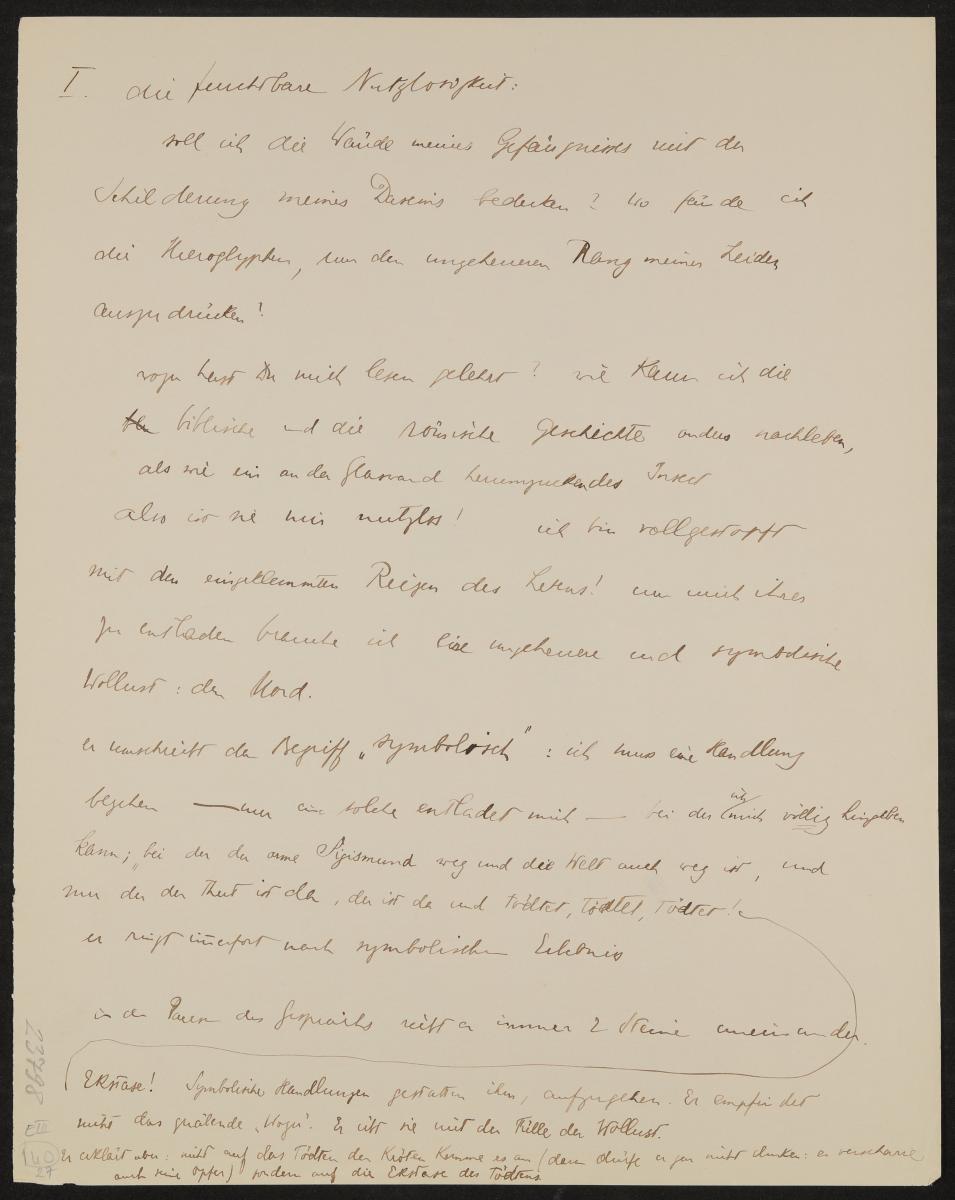 I. die furchtbare Nutzlosigkeit:
soll ich die Wände meines Gefängnisses mit der
Schilderung meines Daseins bedecken? wo fände ich
die Hieroglyphen, um den ungeheueren Rang meiner Leiden
auszudrücken!
wozu hast Du mich lesen gelehrt? wie kann ich die
biblische und die römische Geschichte anders nachleben,
als wie ein an der Glaswand herumzuckendes Insect
also ist sie mir nutzlos! ich bin vollgestopft
mit den eingeklemmten Reizen des Lebens! um mich ihrer
zu entladen brauche ich eine ungeheuere und symbolische
Wollust: den Mord.
er umschreibt den Begriff „symbolisch": ich muss eine Handlung
begehen — nur eine solche entladet mich — bei der ich mich völlig hingeben
kann; bei der der arme Sigismund weg und die Welt auch weg ist, und
nur der der thut ist da, der ist da und tödtet, tödtet, tödtet!
er ringt immerfort nach symbolischem Erlebnis
in den Pausen des Gesprächs reibt er immer 2 Steine aneinander.
Ekstase! Symbolische Handlungen gestatten ihm, aufzugehen. Er empfindet
nicht das quälende „Wozu". Er übt sie mit der Fülle der Wollust.
Er erklärt aber: nicht auf das Tödten der Kröten komme es an (denn dürfe er gar nicht denken: er verscharre
auch seine Opfer) sondern auf die Ekstase des Tödtens
23798
E III
40
27